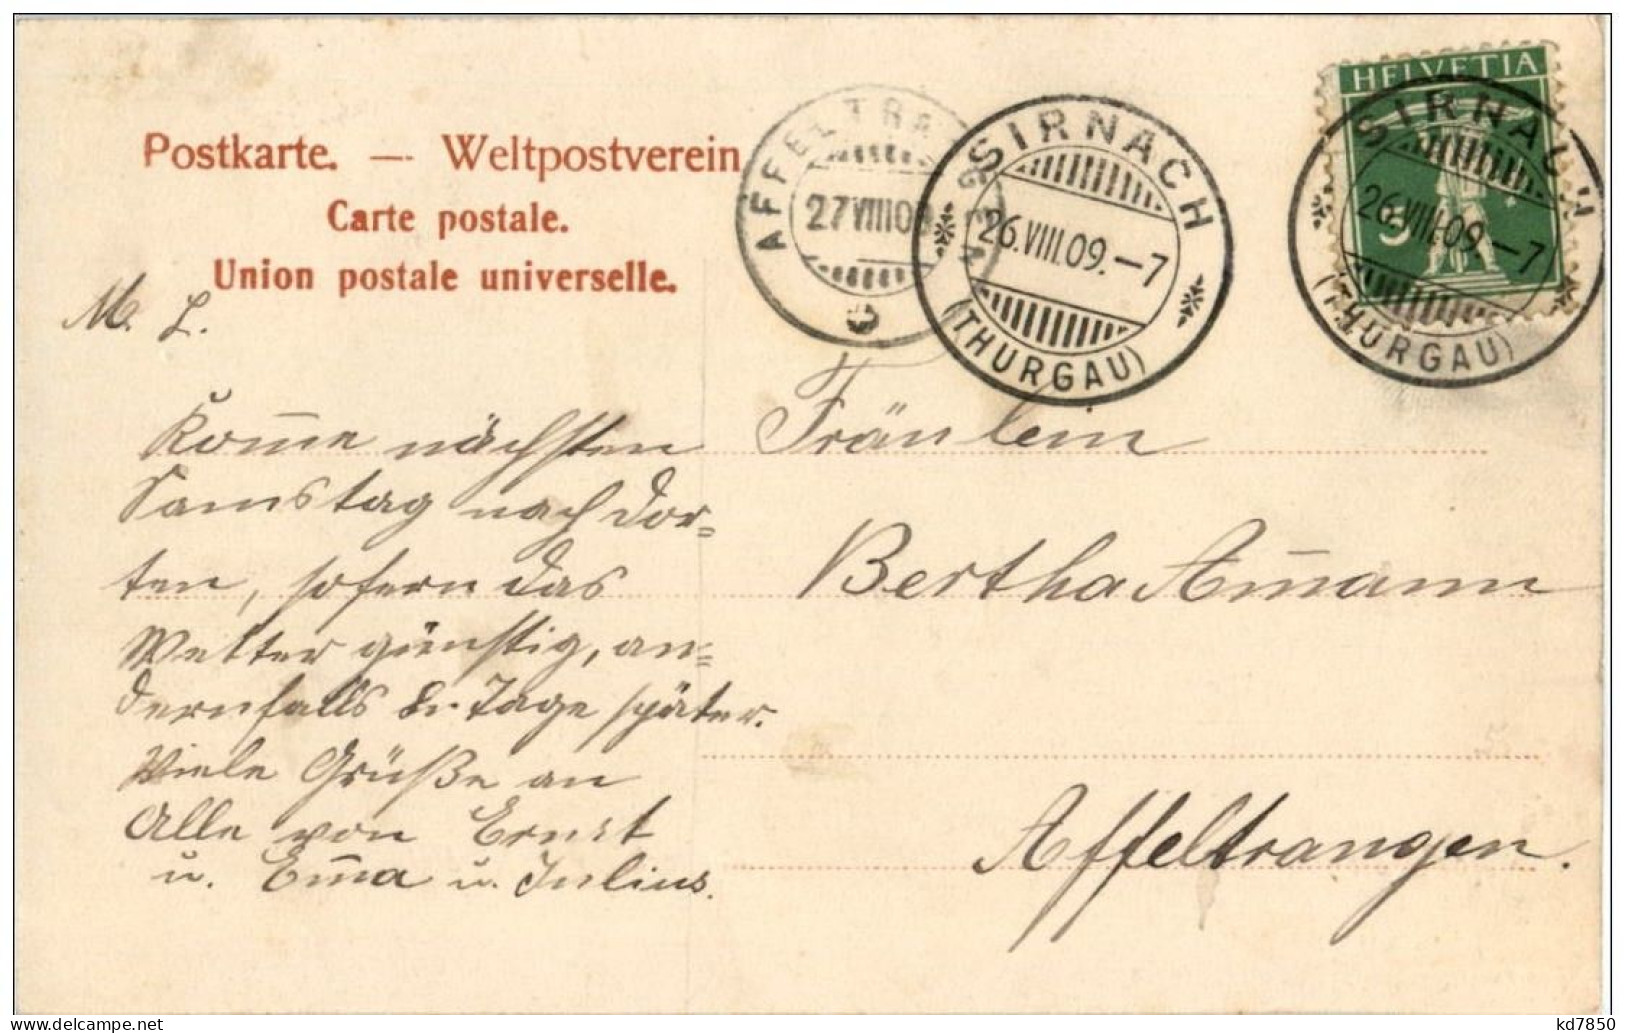 HELVETIA
5
SIRNACH
26.VIII.09.–7
(THURGAU)
SIRNACH
26.VIII.09.–7
(THURGAU)
AFFELTRANGEN
27 VIII 09
Postkarte. — Weltpostverein
Carte postale.
Union postale universelle.
M. L.
Kom̄e nächsten
Samstag nach dor=
ten, sofern das
Wetter günstig, an=
dernfalls 8. Tage später.
Viele Grüße an
Alle von Ernst
u. Em̄a u. Julius.
Fräulein
Bertha Am̄ann
Affeltrangen.
kd7850